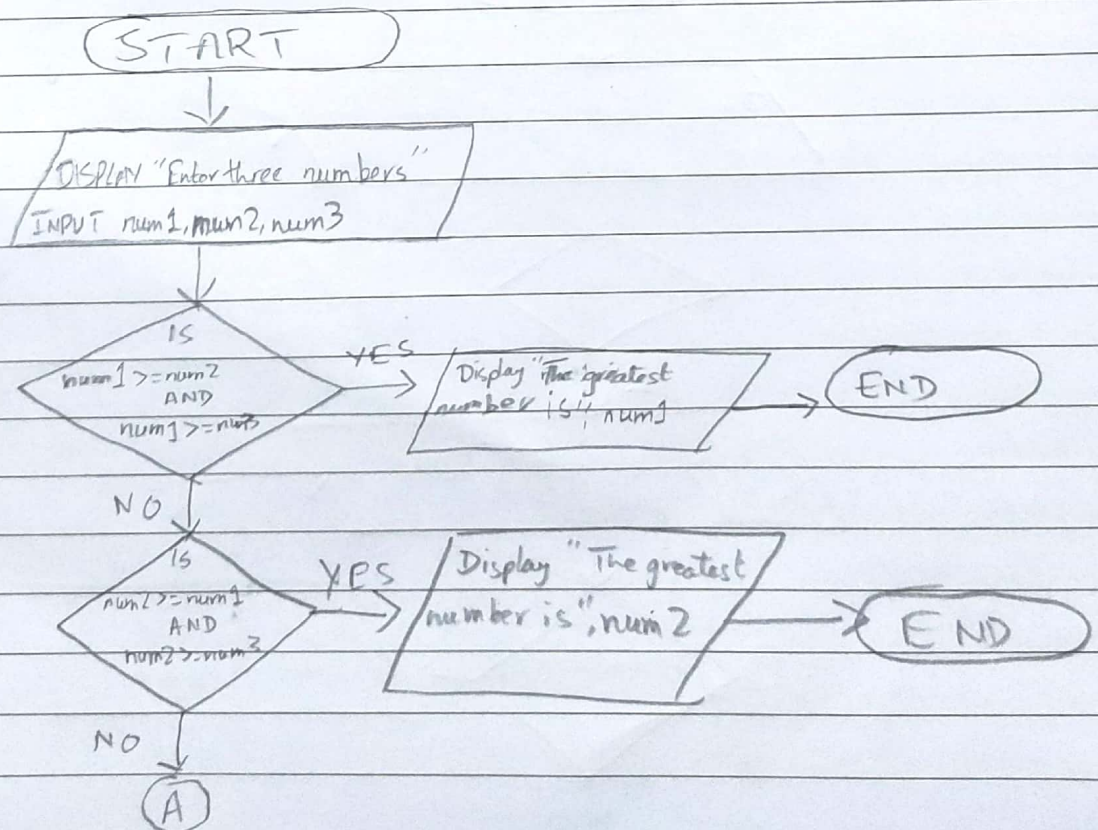 START
DISPLAY "Enter three numbers"
INPUT num1, num2, num3
IS
num1 >= num2
AND
num1 >= num3
YES
Display "The greatest
number is", num1
END
NO
IS
num2 >= num1
AND
num2 >= num3
YES
Display "The greatest
number is", num2
END
NO
A